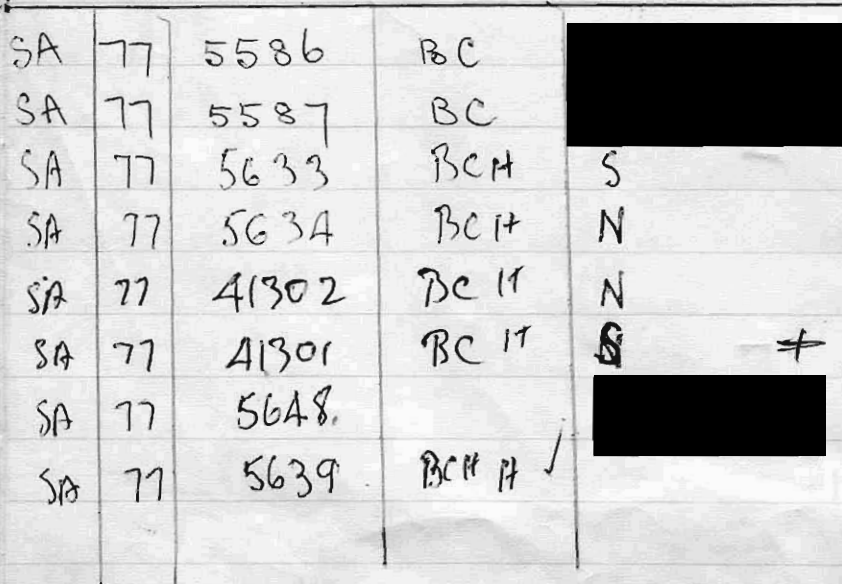 SA 77 5586 BC
SA 77 5587 BC
SA 77 5633 BCH S
SA 77 5634 BCH N
SA 77 41302 BCH N
SA 77 41301 BCH S
SA 77 5648.
SA 77 5639 BCH H ✓